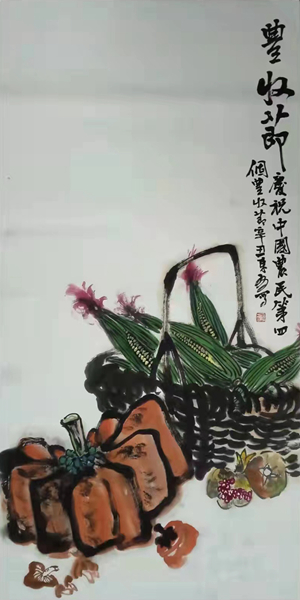 豐收節
慶祝中國農民第四
個豐收節辛丑